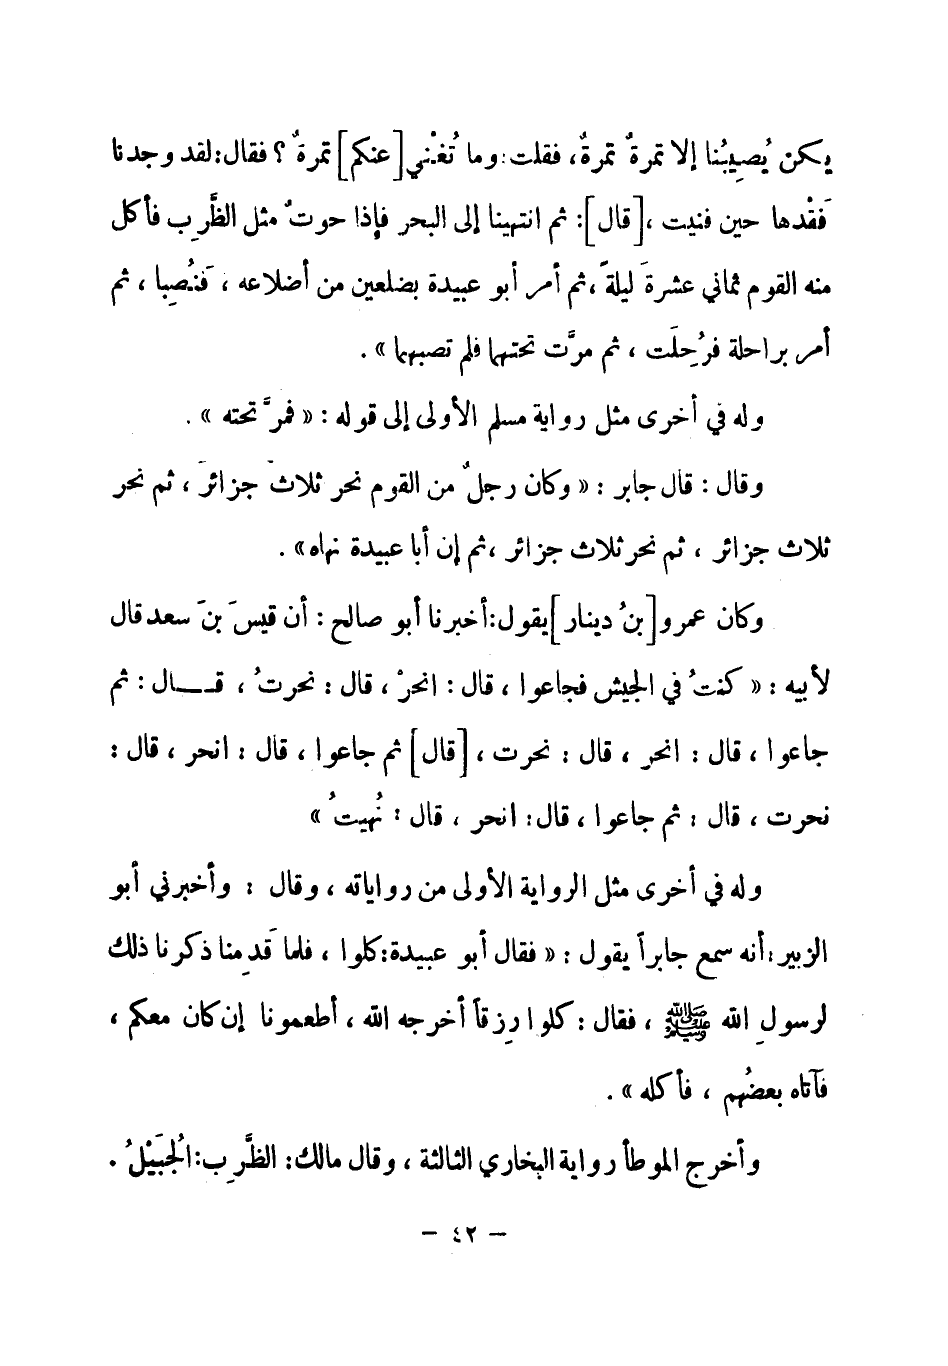 يكن يُصيبُنا إلا تمرةٌ تمرةٌ، فقلت: وما تُغْني [عنكم] تمرةٌ ؟ فقال: لقد وجدنا
فَقْدها حين فنيت ، [قال]: ثم انتهينا إلى البحر فإذا حوتٌ مثل الظَّرِب فأكل
منه القوم ثماني عشرةَ ليلةً ، ثم أمر أبو عبيدة بضلعين من أضلاعه ، فَنُصِبا ، ثم
أمر براحلة فرُحِلَت ، ثم مرَّت تحتهما فلم تصبهما » .
وله في أخرى مثل رواية مسلم الأولى إلى قوله : « فمرَّ تحته » .
وقال : قال جابر : « وكان رجلٌ من القوم نحر ثلاثَ جزائرَ ، ثم نحر
ثلاث جزائر ، ثم نحر ثلاث جزائر ، ثم إن أبا عبيدة نهاه» .
وكان عمرو [بنُ دينار] يقول: أخبرنا أبو صالح : أن قيسَ بنَ سعد قال
لأبيه : « كنتُ في الجيش فجاعوا ، قال : انحرْ ، قال : نحرتُ ، قــال : ثم
جاعوا ، قال : انحر ، قال : نحرت ، [قال] ثم جاعوا ، قال : انحر ، قال :
نحرت ، قال : ثم جاعوا ، قال: انحر ، قال : نُهيتُ »
وله في أخرى مثل الرواية الأولى من رواياته ، وقال : وأخبرني أبو
الزبير: أنه سمع جابراً يقول : « فقال أبو عبيدة: كلوا ، فلما قَدِمنا ذكرنا ذلك
لرسولِ الله ﷺ ، فقال : كلوا رِزقاً أخرجه الله ، أطعمونا إن كان معكم ،
فآتاه بعضُهم ، فأكله » .
وأخرج الموطأ رواية البخاري الثالثة ، وقال مالك: الظَّرِب: الْجُبَيْلُ .
- ٤٢ -